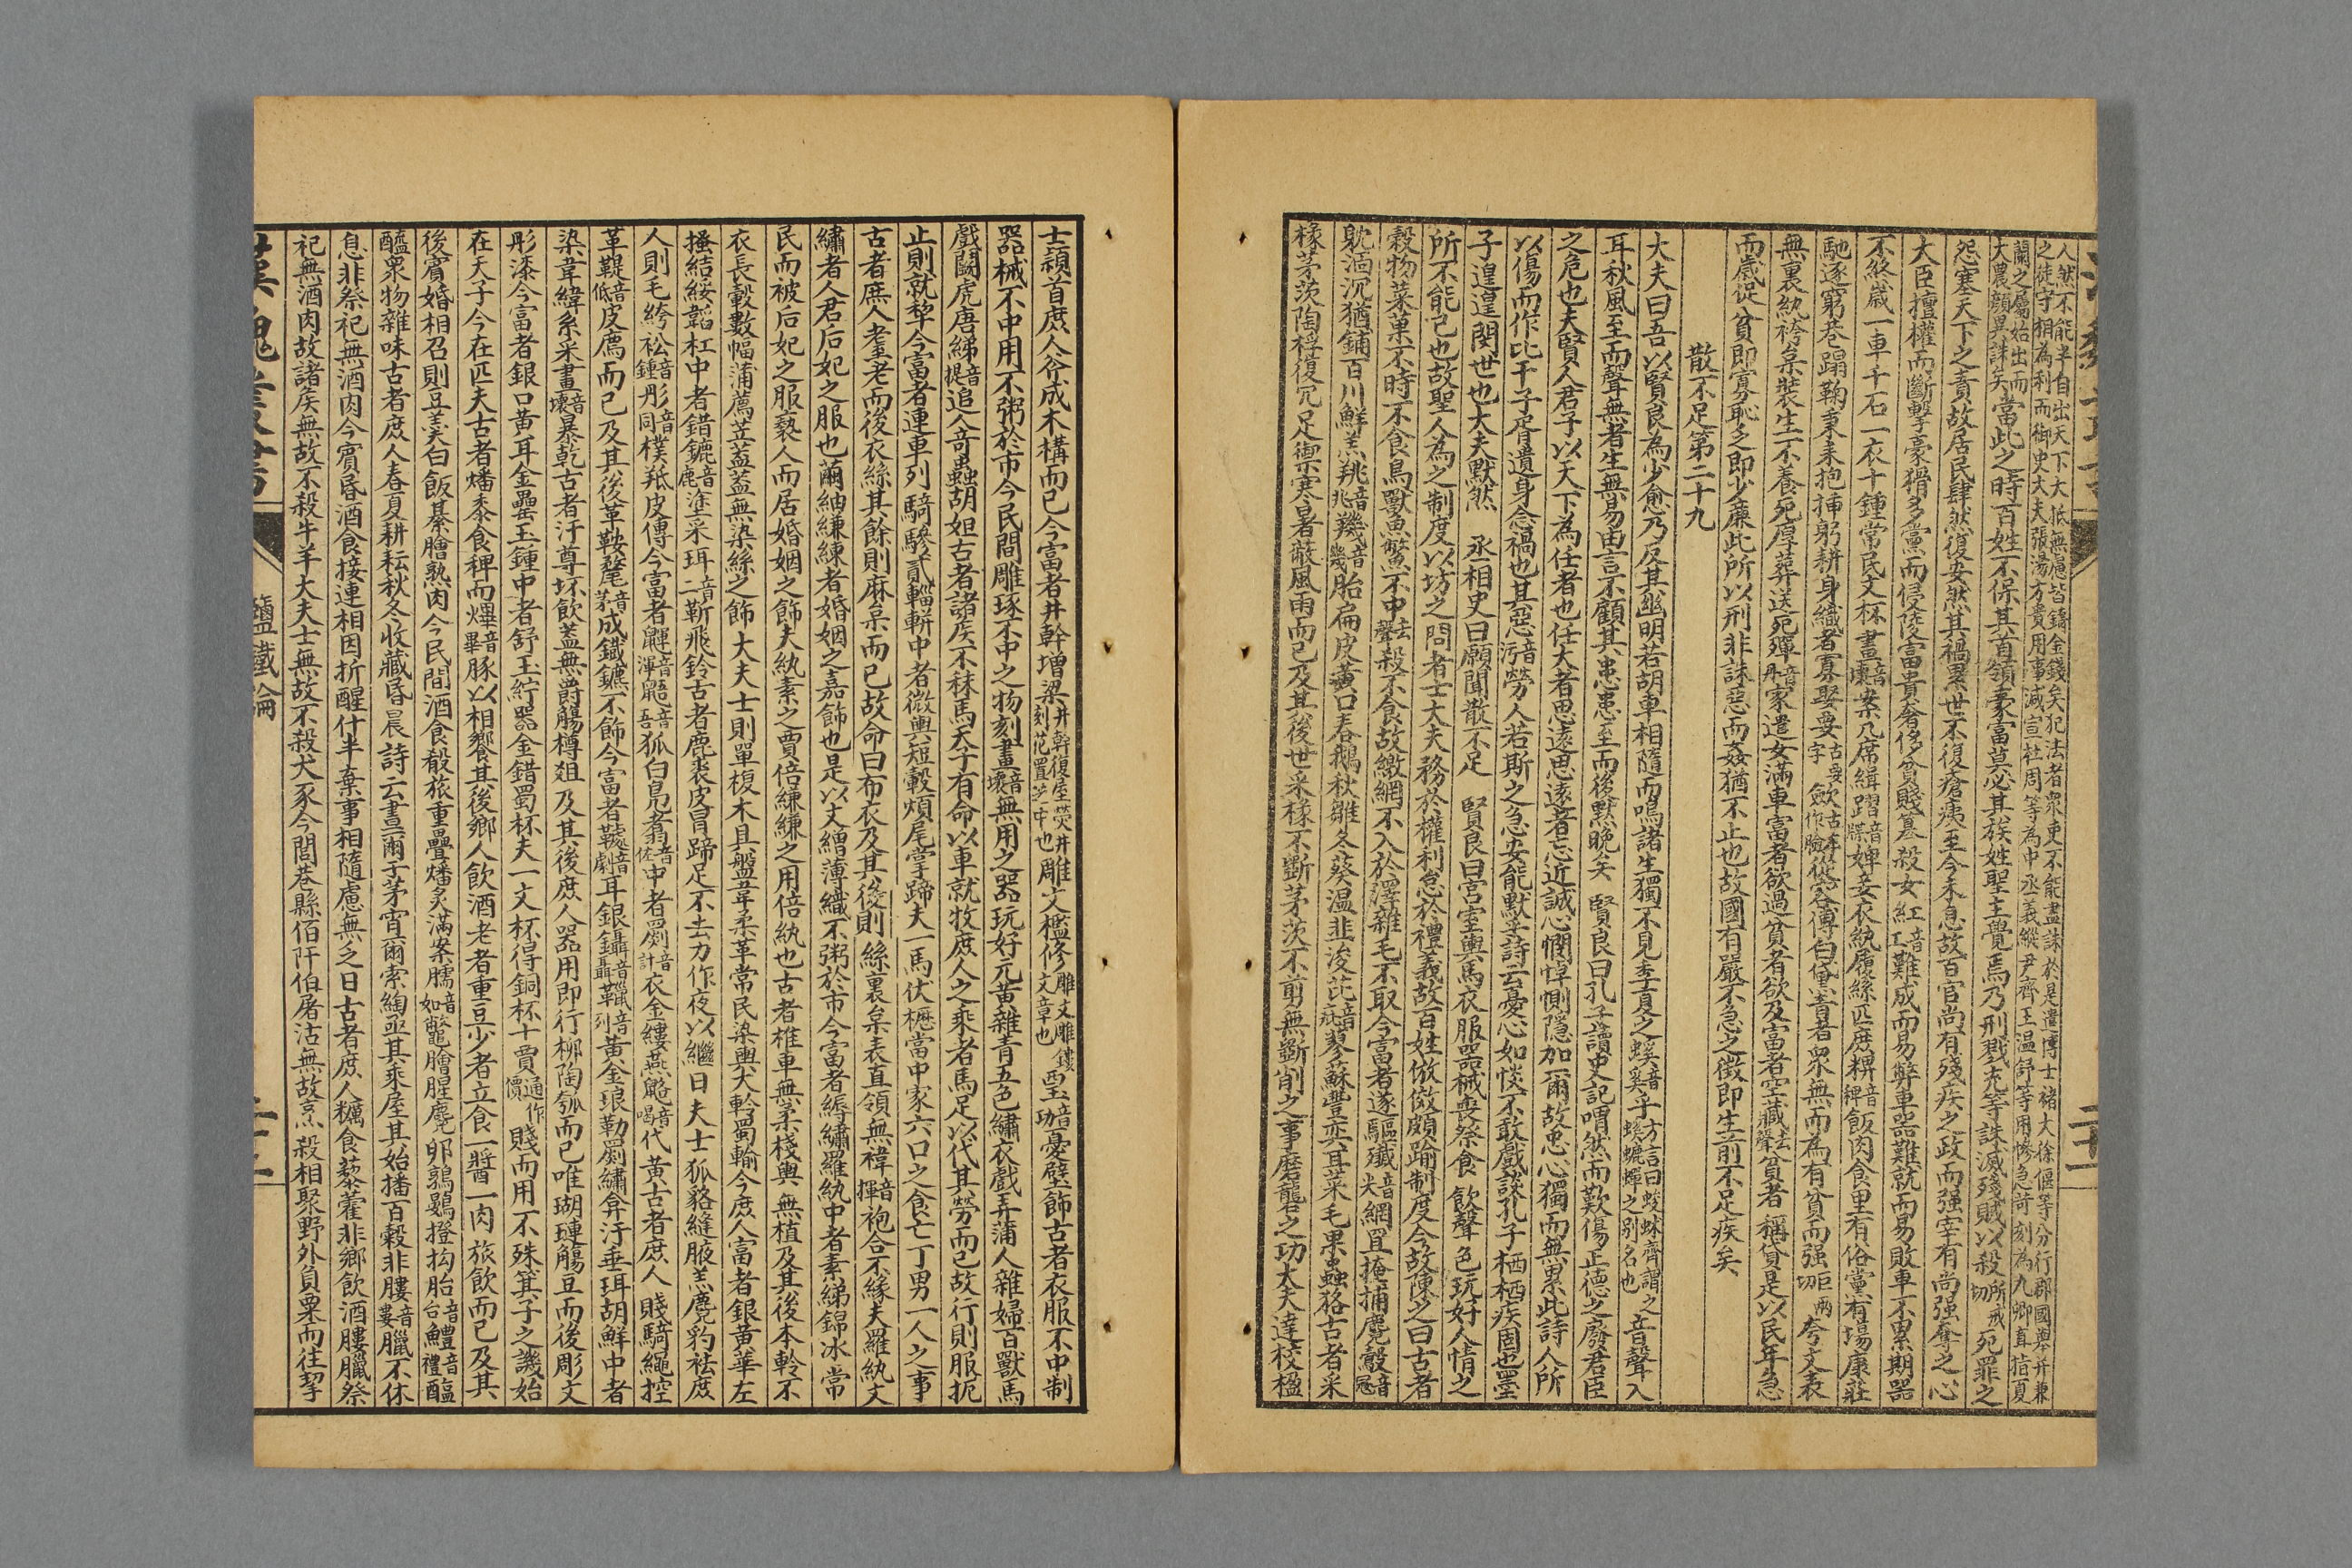 人然不能半自出天下大抵無慮皆鑄金錢矣犯法者衆吏不能盡誅於是遣博士褚大徐偃等分行郡國舉并兼
之徒守相為利而御史大夫張湯方貴用事減宣杜周等為中丞義縱尹齊王温舒等用慘急苛刻為九卿直指夏
蘭之屬始出而大農顔異誅矣當此之時百姓不保其首領豪富莫必其族姓聖主覺焉乃刑戮充等誅滅殘賊以殺所戒切死罪之
怨塞天下之責故居民肆然復安然其禍累世不復瘡痍至今未息故百官尚有殘疾之政而强宰有尚强奪之心
大臣擅權而斷擊豪猾多黨而侵陵富貴奢侈貧賤簒殺女紅音工難成而易弊車器難就而易敗車不累期器
不終歲一車千石一衣十鍾常民文杯畫音壞案几席緝躧音婢妾衣紈履絲匹庶粺音稗飯肉食里有俗黨有場康莊
馳逐窮巷蹋鞠秉耒抱揷躬耕身織者寡娶要古妥字歛古本作臉從容傅白黛青者衆無而為有貧而强巨兩切夸文表
無裏紈袴枲裝生不養死厚葬送死殫音丹家遣女滿車富者欲過貧者欲及富者空藏去聲貧者稱貸是以民年急
而歲促貧即寡恥乏即少廉此所以刑非誅惡而姦猶不止也故國有嚴不急之徴即生前不足疾矣
散不足第二十九
大夫曰吾以賢良為少愈乃反其幽明若胡車相隨而鳴諸生獨不見季夏之螇音奚乎方言曰蛥蚗齊謂之螇螰蟬之别名也音聲入
耳秋風至而聲無者生無易由言不顧其患患至而後默晚矣　賢良曰孔子讀史記喟然而歎傷正德之廢君臣
之危也夫賢人君子以天下為任者也任大者思遠思遠者忘近誠心憫悼惻隱加爾故忠心獨而無累此詩人所
以傷而作比干子胥遺身忘禍也其惡音污勞人若斯之急安能默乎詩云憂心如惔不敢戲談孔子栖栖疾固也墨
子遑遑閔世也大夫默然　丞相史曰願聞散不足　賢良曰宫室輿馬衣服器械喪祭食飲聲色玩好人情之
所不能已也故聖人為之制度以坊之間者士大夫務於權利怠於禮義故百姓倣傚頗踰制度今故陳之曰古者
穀物菜菓不時不食鳥獸魚鱉不中去聲殺不食故繳網不入於澤雜毛不取今富者逐驅殲音尖網罝掩捕麑鷇音冦
躭湎沉猶鋪百川鮮羔䍮音兆䎩音幾胎扁皮黄口春鵝秋雛冬葵温韭浚茈音疵蓼蘇豐耎耳菜毛果蟲貉古者采
椽茅茨陶桴復穴足禦寒暑蔽風雨而已及其後世采椽不斷茅茨不剪無斲削之事磨礱之功大夫達棱楹
士頴首庶人斧成木構而已今富者井幹增梁井幹復屋熒井刻花置芝中也雕文檻修雕文雕鏤文章也堊音功憂壁飾古者衣服不中制
器械不中用不粥於市今民間雕琢不中之物刻畫音壞無用之器玩好元黄雜青五色繡衣戲弄蒲人雜婦百獸馬
戲鬭虎唐綈音提追人奇蟲胡妲古者諸矦不秣馬天子有命以車就牧庶人之乘者馬足以代其勞而已故行則服扼
止則就犂今富者連車列騎驂貳輜軿中者微輿短轂煩尾掌蹄夫一馬伏櫪當中家六口之食亡丁男一人之事
古者庶人耋老而後衣絲其餘則麻枲而已故命曰布衣及其後則絲裏枲表直領無褘音揮袍合不緣夫羅紈文
繡者人君后妃之服也繭紬縑練者婚姻之嘉飾也是以文繒薄織不粥於市今富者縟繡羅紈中者素綈錦冰常
民而被后妃之服褻人而居婚姻之飾夫紈素之賈倍縑縑之用倍紈也古者椎車無柔棧輿無植及其後本軨不
衣長轂數幅蒲薦苙蓋蓋無染絲之飾大夫士則單椱木具盤韋柔革常民染輿大軨蜀輪今庶人富者銀黄華左
搔結綏韜杠中者錯鑣音鹿塗采珥音二靳飛鈴古者鹿裘皮冒蹄足不去力作夜以繼日夫士狐貉縫腋羔麑豹袪庶
人則毛絝衳音鍾彤音同樸羝皮傅今富者鼲音渾鼯音吾狐白鳧翥音佐中者罽音計衣金縷燕䶅音曷代黄古者庶人賤騎繩控
革鞮音低皮廌而已及其後革鞍氂音茅成鐵鑣不飾今富者鞿音劇耳銀鑷音聶䪉音列黄金琅勒罽繡弇汗垂珥胡鮮中者
染韋緯系采畫音壞暴乾古者汙尊坏飲蓋無爵觴樽俎及其後庶人器用即行栁陶瓠而已唯瑚璉觴豆而後彫文
彤漆今富者銀口黄耳金罍玉鍾中者舒玉紵器金錯蜀杯夫一文杯得銅杯十賈通作價賤而用不殊箕子之譏始
在天子今在匹夫古者燔黍食稗而熚音畢豚以相饗其後鄉人飲酒老者重豆少者立食一醬一肉旅飲而已及其
後賓婚相召則豆羹白飯綦膾熟肉今民間酒食殽旅重疊燔炙滿案臑音如鼈膾腥麑卵鶉鷃撜拘胎音台鱧音禮醢
醯衆物雜味古者庶人春夏耕耘秋冬收藏昏晨詩云晝爾于茅宵爾索綯亟其乘屋其始播百穀非膢音婁臘不休
息非祭祀無酒肉今賓昏酒食接連相因折酲什半棄事相隨慮無乏日古者庶人糲食藜藿非鄉飲酒膢臘祭
祀無酒肉故諸矦無故不殺牛羊大夫士無故不殺犬豕今閭巷縣佰阡伯屠沽無故烹殺相聚野外負粟而往挈
漢魏叢書
鹽鐵論